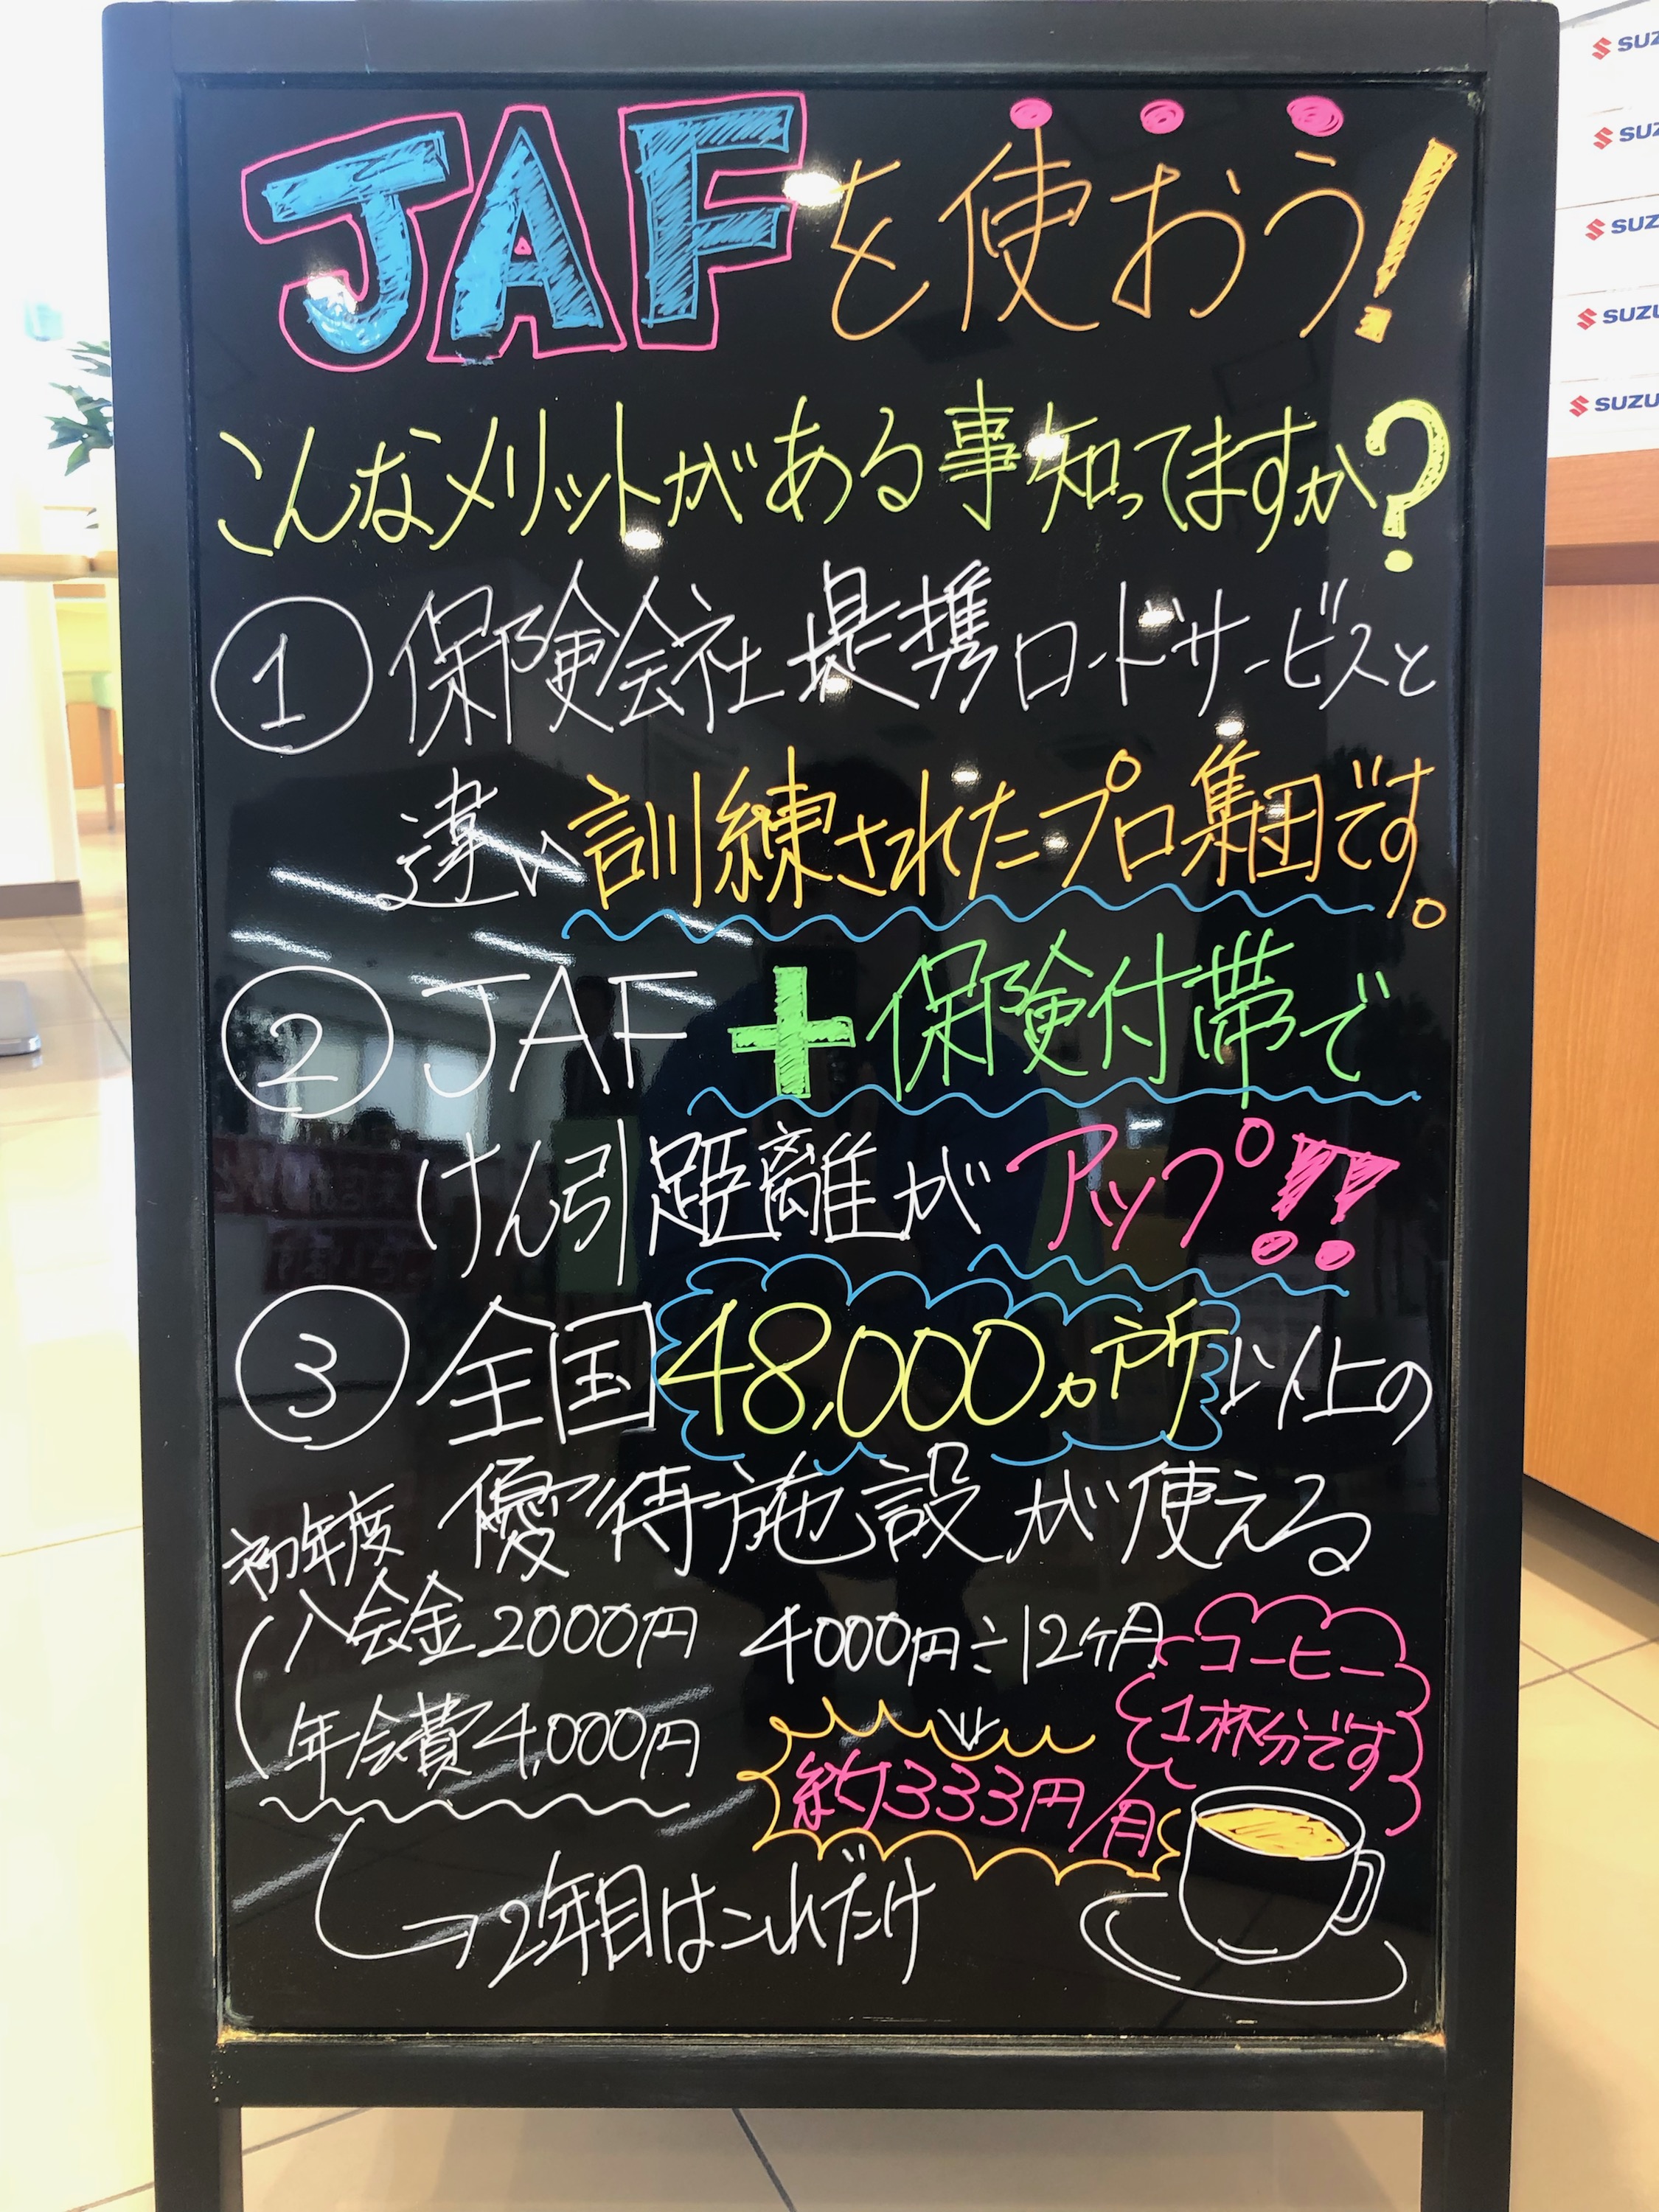 JAFを使おう!
こんなメリットがある事知ってますか?
① 保険会社提携ロードサービスと
違い訓練されたプロ集団です。
② JAF+保険付帯で
けん引距離がアップ!!
③ 全国48,000ヵ所以上の
優待施設が使える
初年度
入会金2000円
年会費4,000円
4000円÷12ヶ月
約333円/月
コーヒー
1杯分です
→2年目はこれだけ
SUZ
SUZ
SUZ
SUZU
SUZU